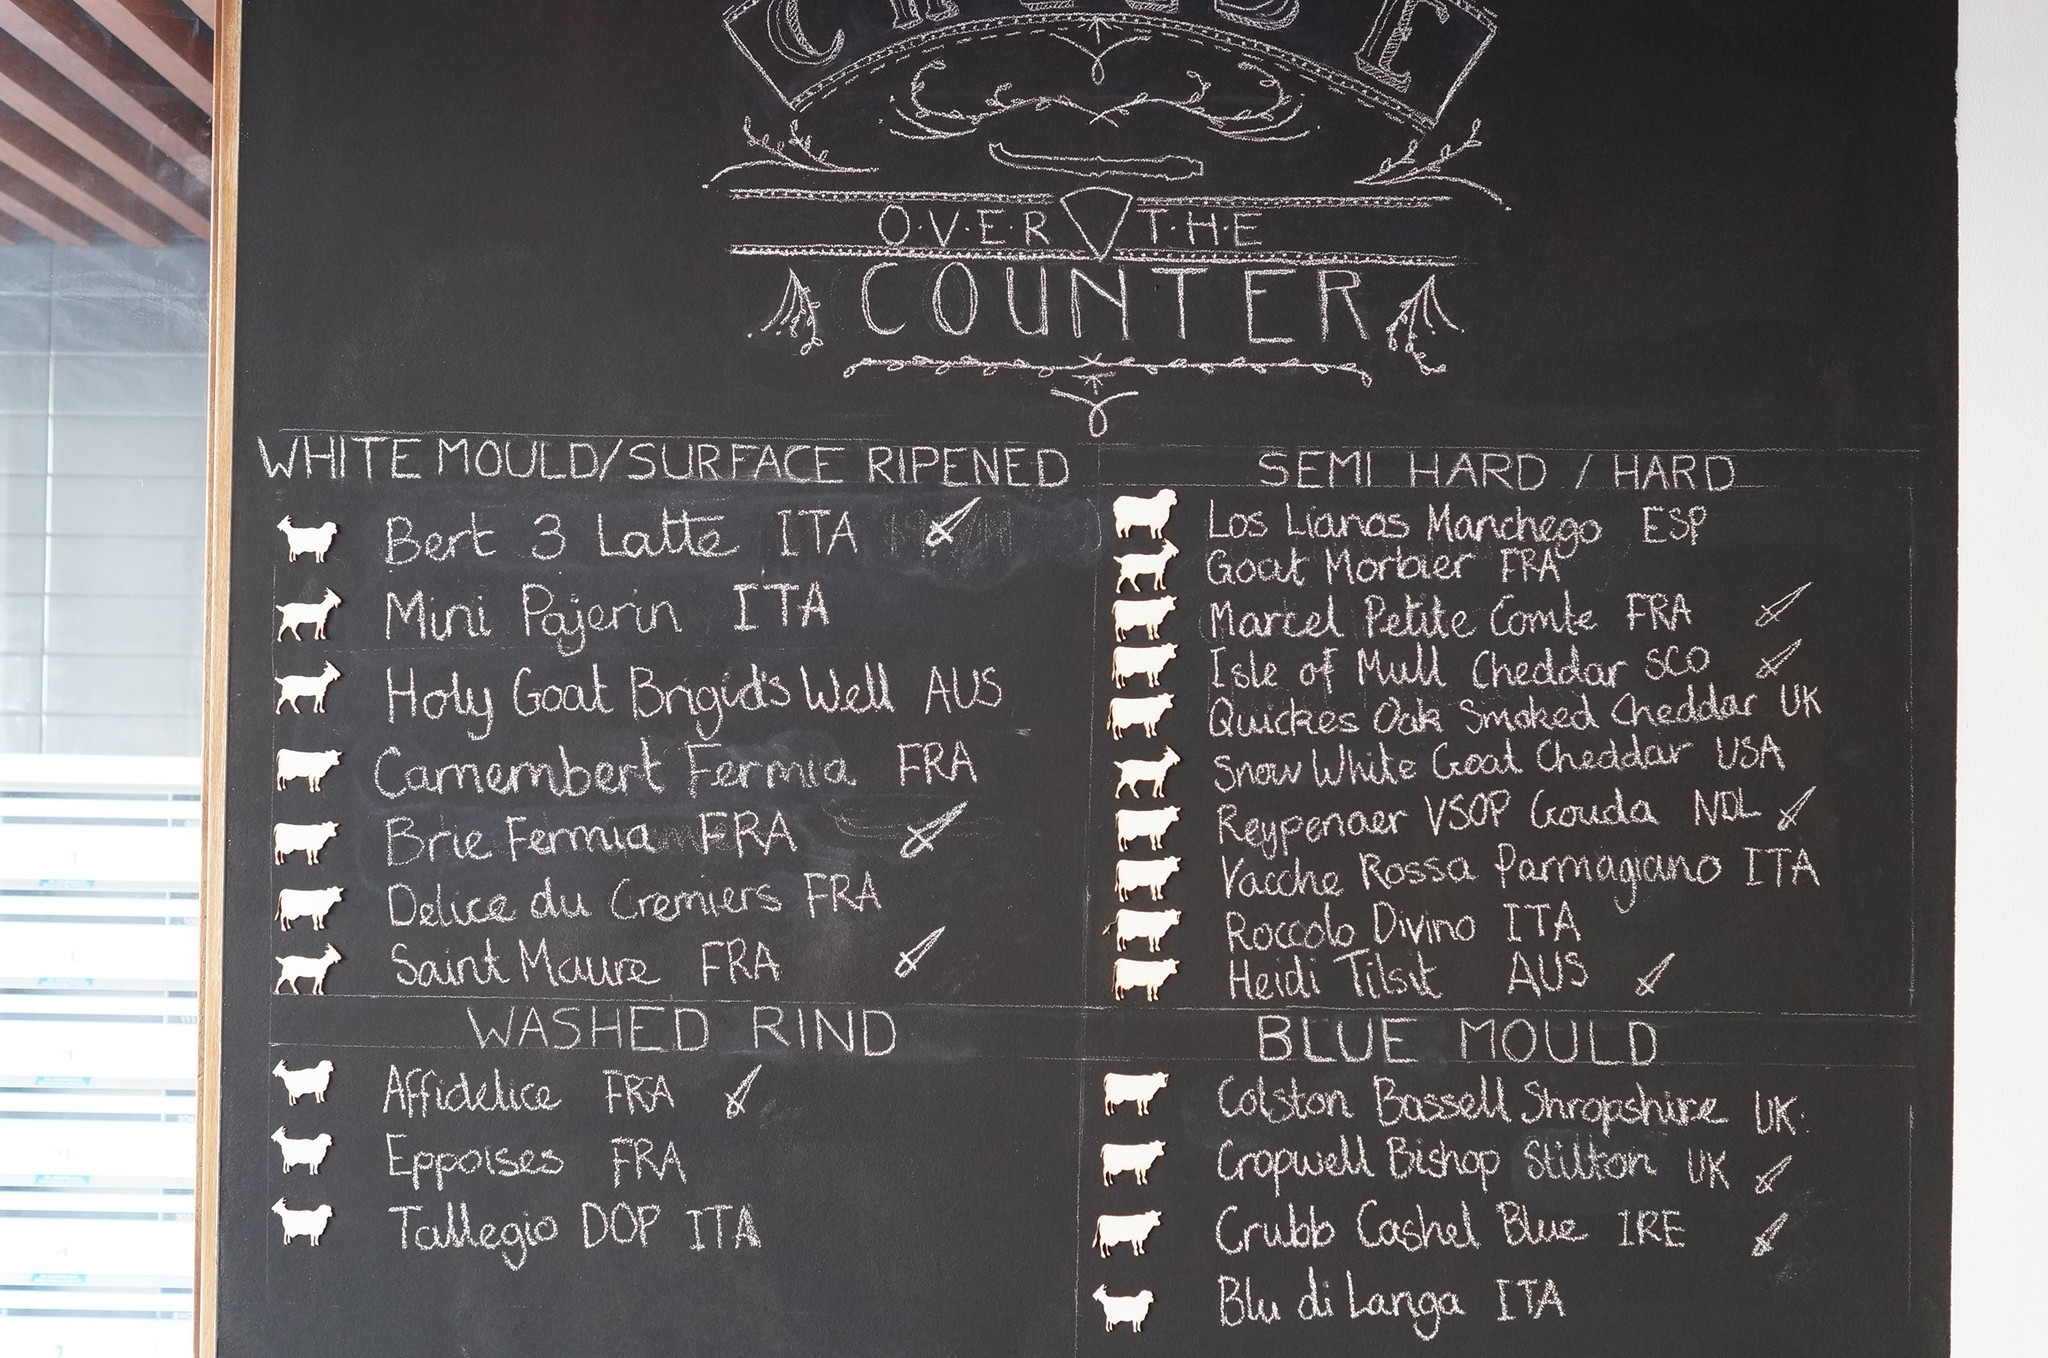 CHEESE
OVER THE
COUNTER
WHITE MOULD/SURFACE RIPENED
Bert 3 Latte ITA
Mini Pajerin ITA
Holy Goat Brigid's Well AUS
Camembert Fermia FRA
Brie Fermia FRA
Delice du Cremiers FRA
Saint Maure FRA
WASHED RIND
Affidelice FRA
Eppoises FRA
Tallegio DOP ITA
SEMI HARD / HARD
Los Lianas Manchego ESP
Goat Morbier FRA
Marcel Petite Comte FRA
Isle of Mull Cheddar SCO
Quickes Oak Smoked Cheddar UK
Snow White Goat Cheddar USA
Reypenaer VSOP Gouda NDL
Vacche Rossa Parmagiano ITA
Roccolo Divino ITA
Heidi Tilsit AUS
BLUE MOULD
Colston Bassell Shropshire UK.
Cropwell Bishop Stilton UK
Crubb Cashel Blue IRE
Blu di Langa ITA